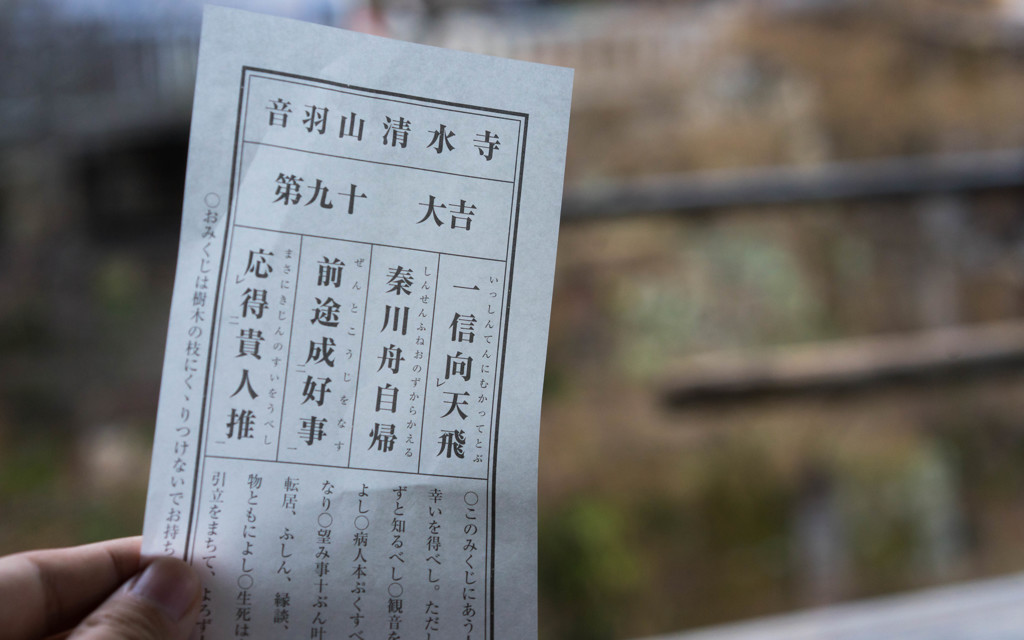 音羽山 清水寺
第九十 大吉
いっしんてんにむかってとぶ
一信向レ天飛
しんせんふねおのずからかえる
秦川舟自帰
ぜんとこうじをなす
前途成二好事一
まさにきじんのすいをうべし
応レ得二貴人推一
○このみくじにあう
幸いを得べし。ただし
ずと知るべし○観音を
よし○病人本ぷくすべ
なり○望み事十ぶん叶
転居、ふしん、縁談、
物ともによし○生死は
引立をまちて、よろず
○おみくじは樹木の枝にくゝりつけないでお持ち